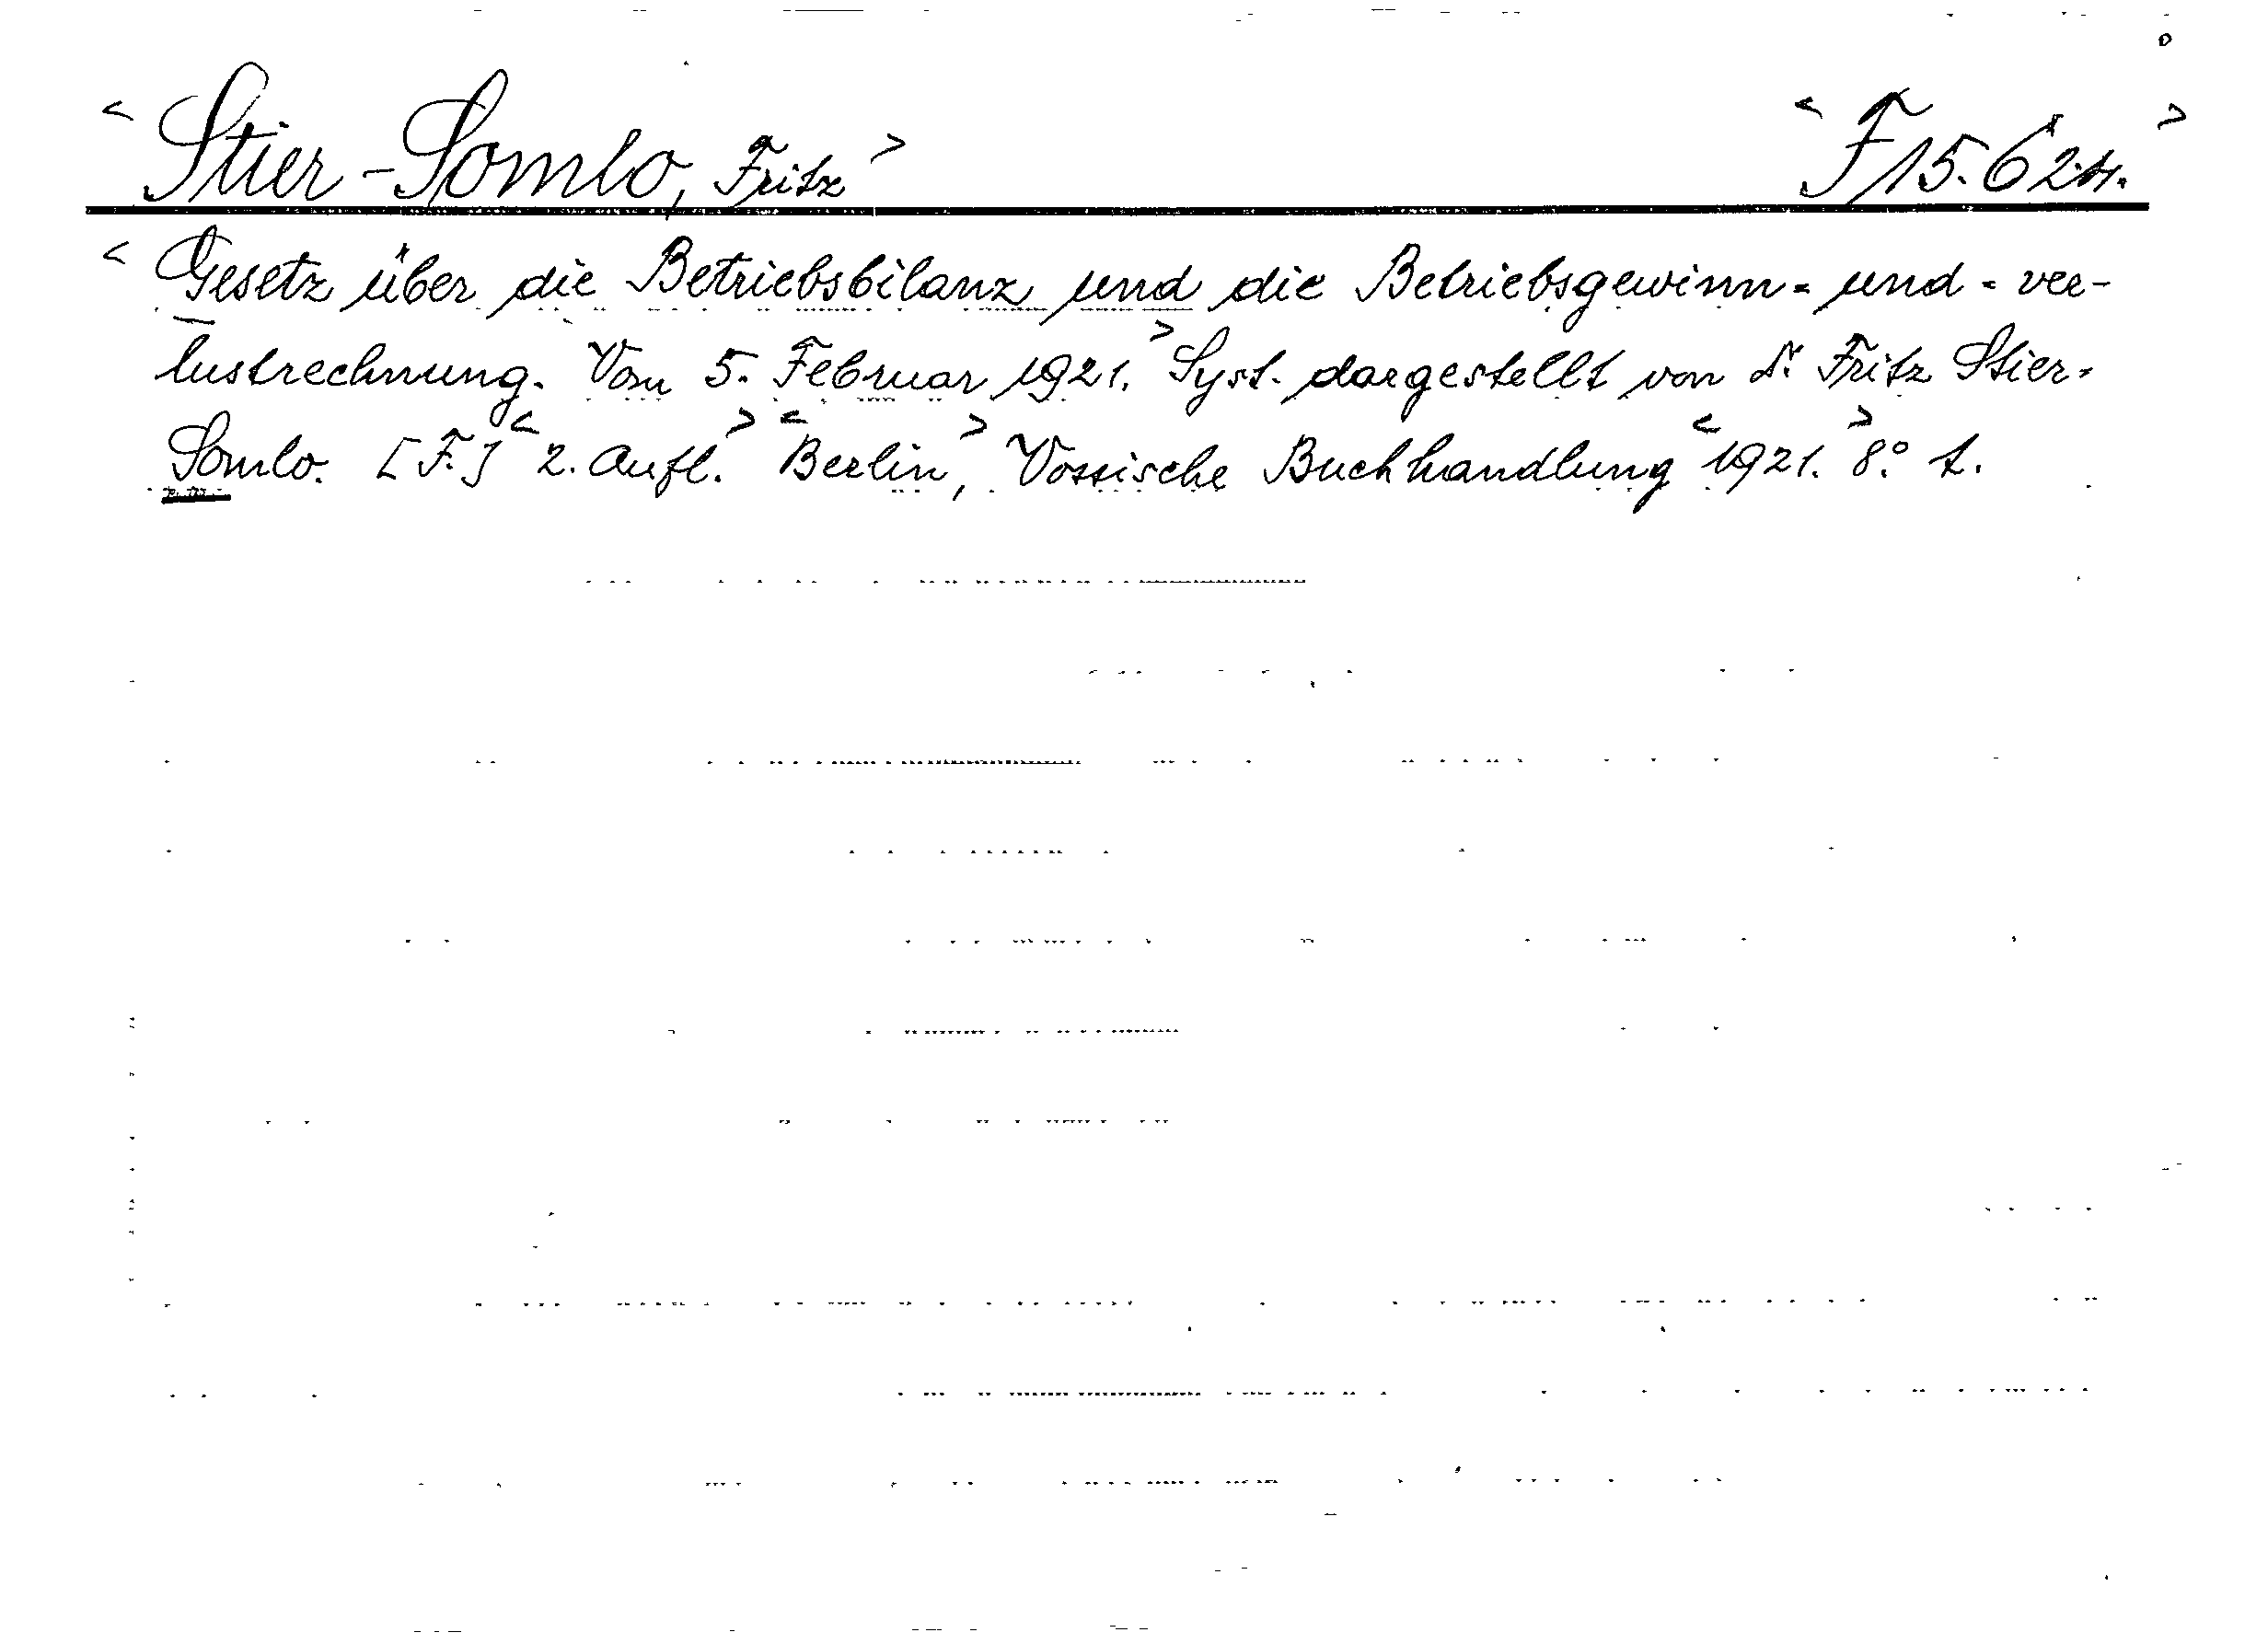 < Stier-Somlo, Fritz > < F 15.62
< Gesetz über die Betriebsbilanz und die Betriebsgewinn- und -ver-
lustrechnung. Vom 5. Februar 1921. > Syst. dargestellt von Dr. Fritz Stier-
Somlo. [F.] < 2. Aufl. > < Berlin, > Vossische Buchhandlung < 1921. > 8.° 1.